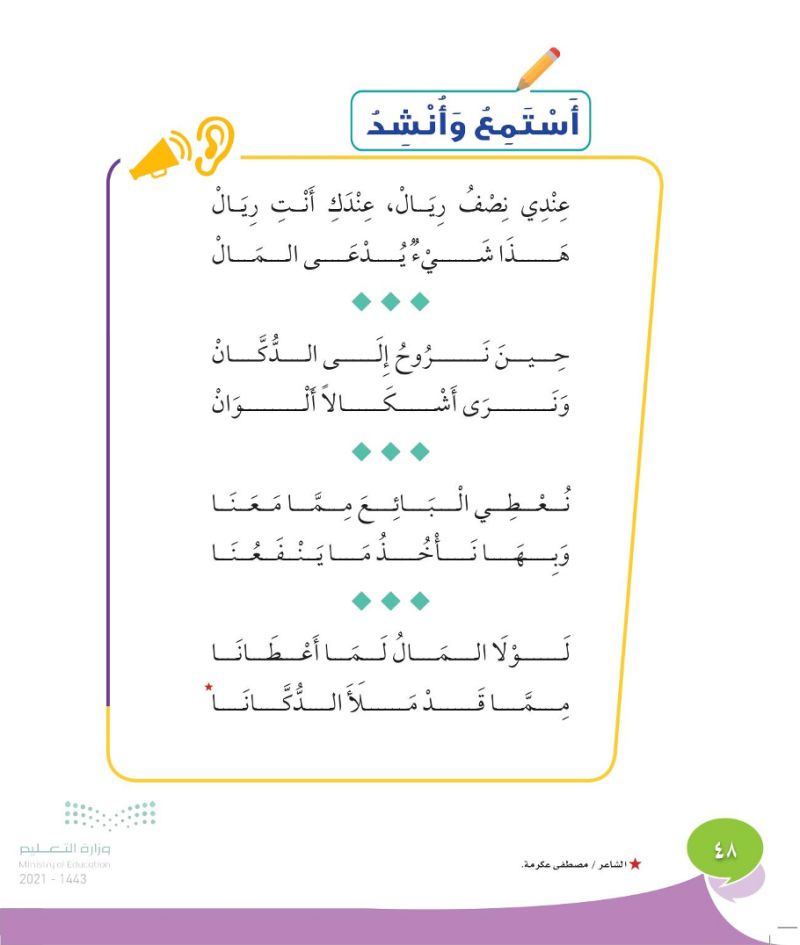 أَسْتَمِعُ وَأُنْشِدُ
عِنْدِي نِصْفُ رِيَـالْ، عِنْدَكِ أَنْـتِ رِيَـالْ
هَـذَا شَـيْءٌ يُـدْعَـى الـمَـالْ
حِـيـنَ نَـرُوحُ إِلَـى الـدُّكَّـانْ
وَنَـرَى أَشْـكَـالاً أَلْـوَانْ
نُـعْـطِـي الْـبَـائِـعَ مِـمَّـا مَـعَـنَـا
وَبِـهَـا نَـأْخُـذُ مَـا يَـنْـفَـعُـنَـا
لَـوْلَا الـمَـالُ لَـمَـا أَعْـطَـانَـا
مِـمَّـا قَـدْ مَـلَأَ الـدُّكَّـانَـا ★
★ الشاعر / مصطفى عكرمة.
٤٨
وزارة التعـليم
Ministry of Education
2021 - 1443